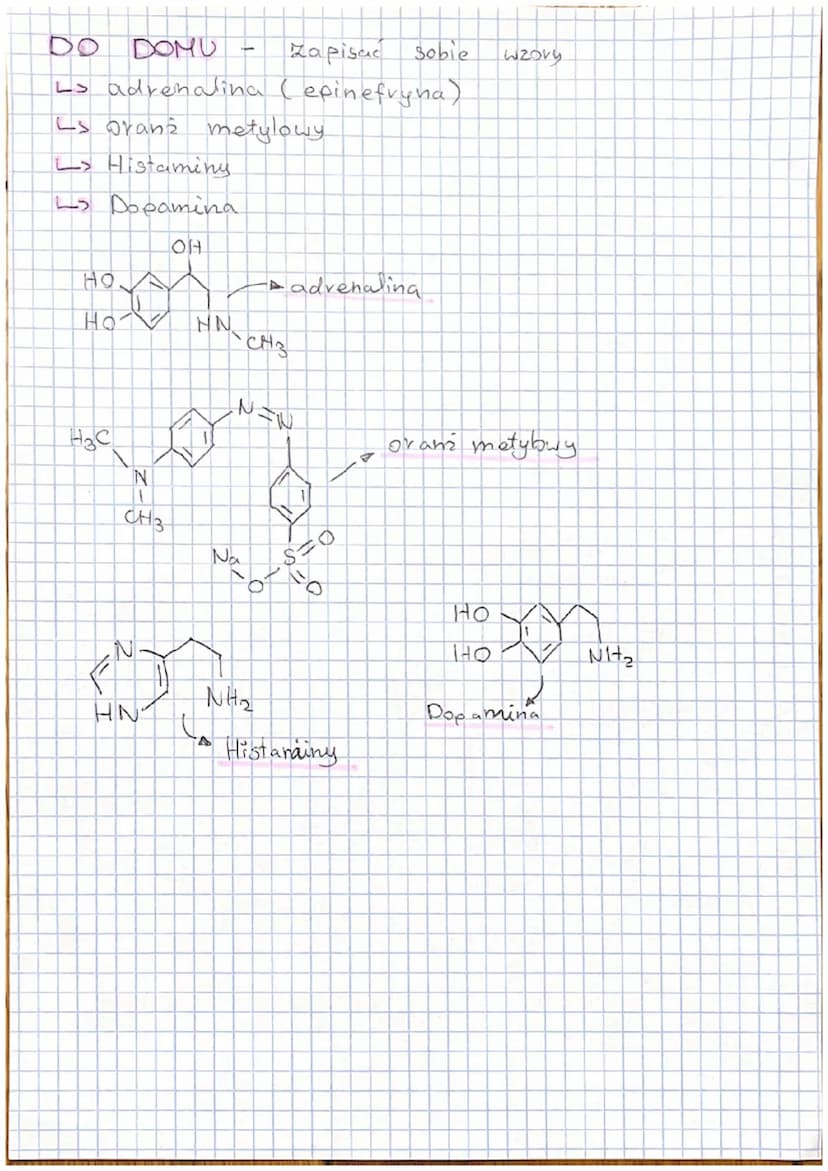 DO DOMU - zapisać sobie wzory
↳ adrenalina (epinefryna)
↳ oranż metylowy
↳ Histaminy
↳ Dopamina
OH
HO
HO
HN
CH3
adrenalina
N=N
H3C
N
CH3
oranż metylowy
Na
O
S
O
O
N
HN
NH2
Histaminy
HO
HO
NH2
Dopamina